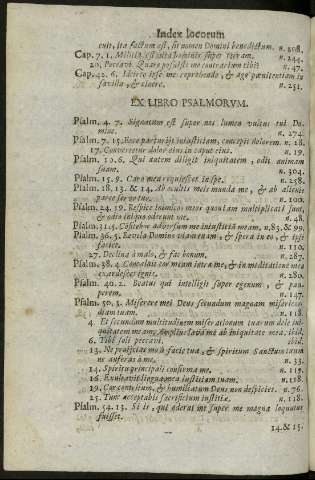 Index locorum
cuit, ita factum est, sit nomen Domini benedictum. n. 208.
Cap. 7. 1. Militia est vita hominis super terram. n. 244.
20. Peccavi. Quare posuisti me contrarium tibi? n. 47.
Cap. 42. 6. Idcirco ipse me reprehendo, & ago pœnitentiam in
favilla, & cinere. n. 251.
EX LIBRO PSALMORVM.
Psalm. 4. 7. Signatum est super nos lumen vultus tui Do-
mine. n. 274.
Psalm. 7. 15. Ecce parturijt iniustitiam, concepit dolorem. n. 18.
17. Convertetur dolor eius in caput eius. n. 19.
Psalm. 10. 6. Qui autem diligit iniquitatem, odit animam
suam. n. 304.
Psalm. 15. 9. Caro mea requiescet in spe. n. 258.
Psalm. 18. 13. & 14. Ab occultis meis munda me, & ab alienis
parce servo tuo. n. 100.
Psalm. 24. 19. Respice inimicos meos quoniam multiplicati sunt,
& odio iniquo oderunt me. n. 48.
Psalm. 31. 5. Confitebor adversum me iniustitiā meam. n. 83, & 99.
Psalm. 36. 5. Revela Domino viam tuam, & spera in eo, & ipse
faciet. n. 110.
27. Declina à malo, & fac bonum. n. 287.
Psalm. 38. 4. Concaluit cor meum intra me, & in meditatione mea
exardescet ignis. n. 280.
Psalm. 40. 2. Beatus qui intelligit super egenum, & pau-
perem. n. 147.
Psalm. 50. 3. Miserere mei Deus secundum magnam misericor-
diam tuam. n. 118.
4. Et secundum multitudinem miserationum tuarum dele ini-
quitatem meam. Amplius lava me ab iniquitate mea. ibid.
6. Tibi soli peccavi. ibid.
13. Ne projicias me à facie tua, & spiritum Sanctum tuum
ne auferas à me. n. 118.
14. Spiritu principali confirma me. n. 119.
16. Exultabit lingua mea iustitiam tuam. n. 118.
19. Cor contritum, & humiliatum Deus non despicies. n. 76.
21. Tunc acceptabis sacrificium iustitiæ. n. 118.
Psalm. 54. 13. Si is, qui oderat me super me magna loquutus
fuisset.
14. & 15.